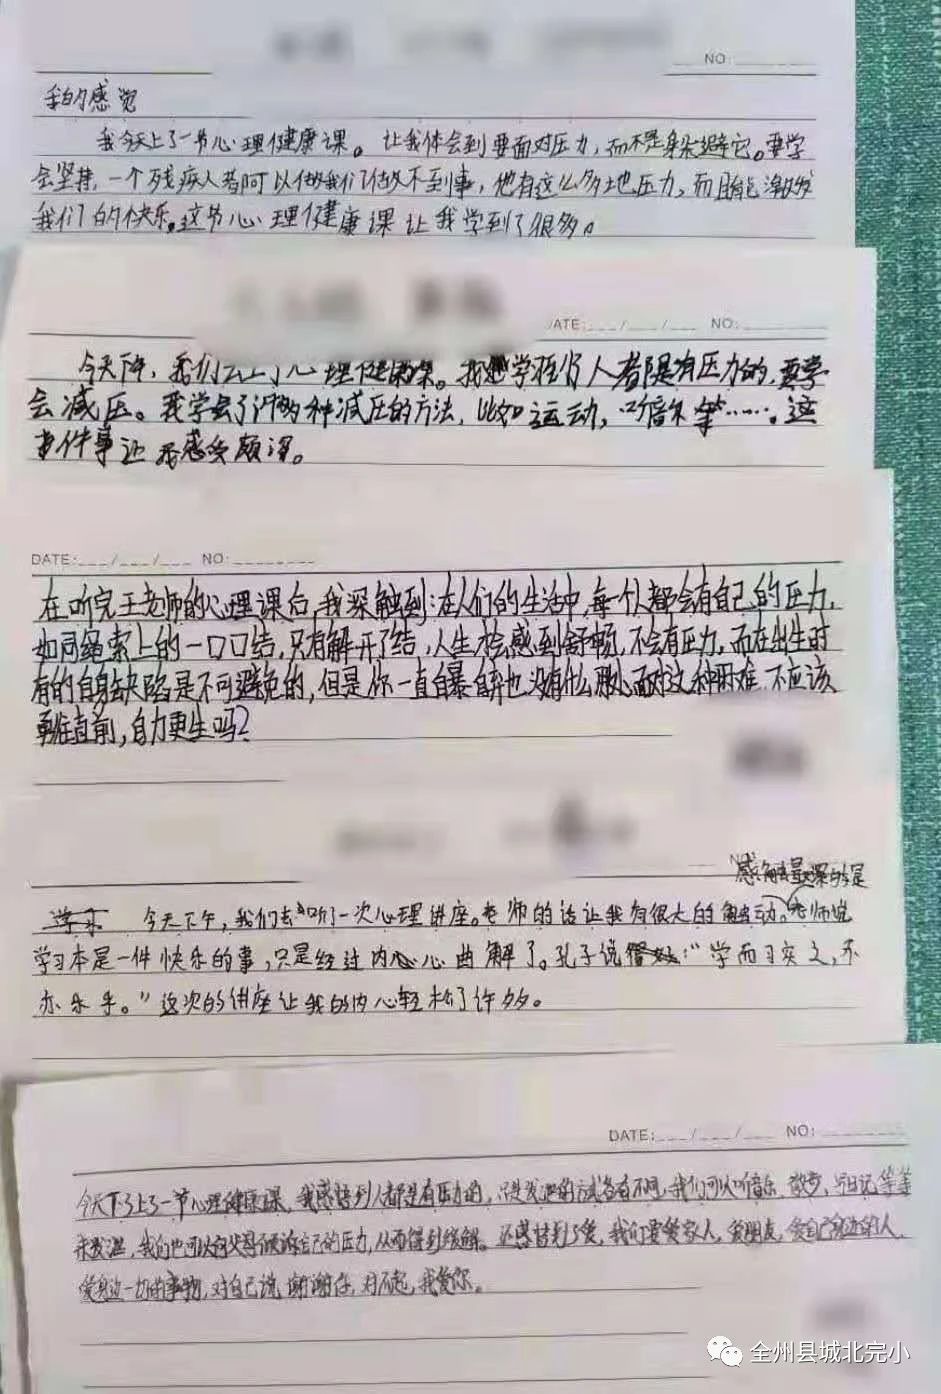 NO:
我的感觉
我今天上了一节心理健康课。让我体会到要面对压力,而不是躲避它。要学
会坚持,一个残疾人都可以做我们做不到事,他有这么多地压力,而且能激发
我们的快乐。这节心理健康课让我学到了很多。
DATE:___/___/___ NO:
今天下午,我们去上了心理健康课。我学到了人都是有压力的,要学
会减压。我学会了许多种减压的方法,比如运动,听音乐等……。这
件事让我感受颇深。
DATE:___/___/___ NO:
在听完王老师的心理课后,我深触到:在人们的生活中,每个人都会有自己的压力,
如同绳索上的一口口结,只有解开了结,人生才会感到舒畅,不会有压力,而在出生时
有的自身缺陷是不可避免的,但是你一直自暴自弃也没有什么用,面对这种困难,不应该
勇往直前,自力更生吗?
感触最深的是
今天下午,我们去听了一次心理讲座。老师的话让我有很大的触动。老师说
学习本是一件快乐的事,只是经过内心曲解了。孔子说:“学而习实之,不
亦乐乎。”这次的讲座让我的内心轻松了许多。
DATE:___/___/___ NO:
今天下午上了一节心理健康课,我感悟到人都是有压力的,只是发泄的方式各有不同,我们可以听音乐,散步,写日记等等
来发泄,我们也可以向父母倾诉自己的压力,从而得到缓解。还感悟到了爱,我们要爱家人,爱朋友,爱自己身边的人,
爱身边一切的事物,对自己说,谢谢你,对不起,我爱你。
全州县城北完小